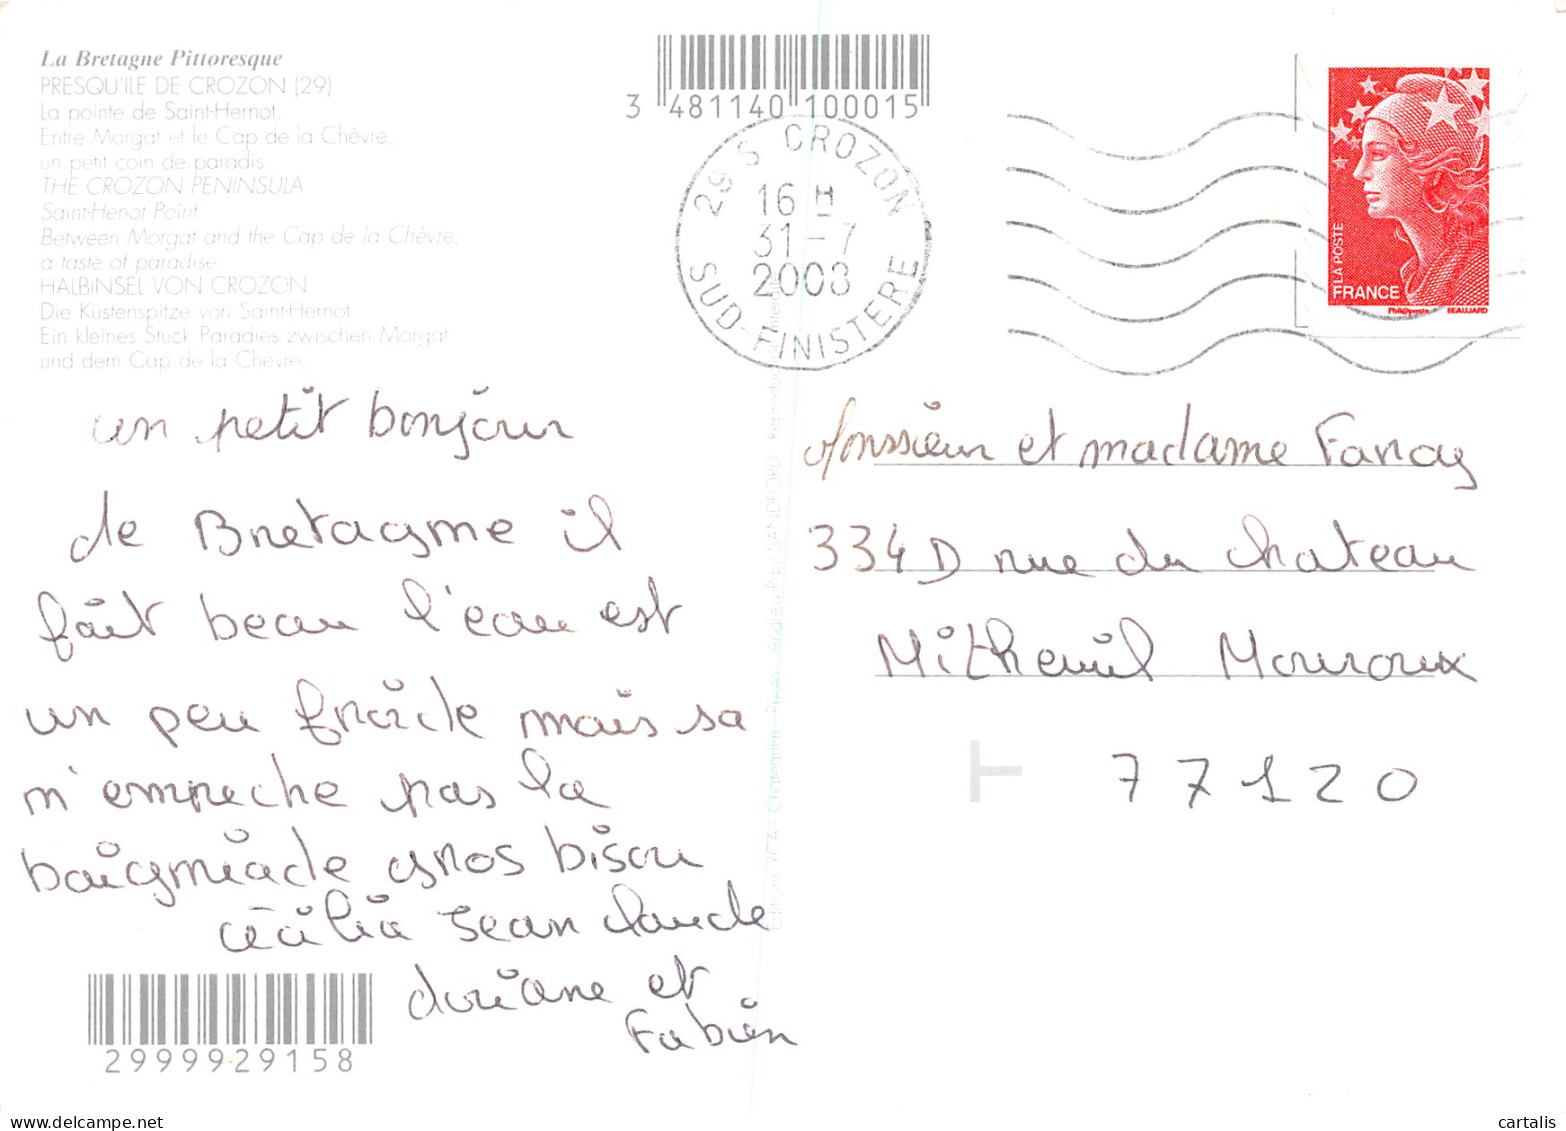 La Bretagne Pittoresque
PRESQU'ILE DE CROZON (29)
La pointe de Saint-Hernot.
Entre Morgat et le Cap de la Chèvre,
un petit coin de paradis.
THE CROZON PENINSULA
Saint-Henot Point
Between Morgat and the Cap de la Chèvre,
a taste of paradise
HALBINSEL VON CROZON
Die Küstenspitze von Saint-Hernot
Ein kleines Stück Paradies zwischen Morgat
und dem Cap de la Chèvre.
3 481140 100015
29 S CROZON
16 H
31-7
2008
SUD-FINISTERE
LA POSTE
FRANCE
Phil@poste BEAUJARD
un petit bonjour
de Bretagne il
fait beau l'eau est
un peu froide mais sa
m'empeche pas la
baigniade gros bisou
Cécilia Jean claude
doriane et
Fabien
Monssieur et madame Fanay
334 D rue du chateau
Mitheuil Mouroux
T
77120
Editions YCA - Châteaulin - Photo Andrew Paul SANDFORD - Reproduction interdite
29999-29158
cartalis